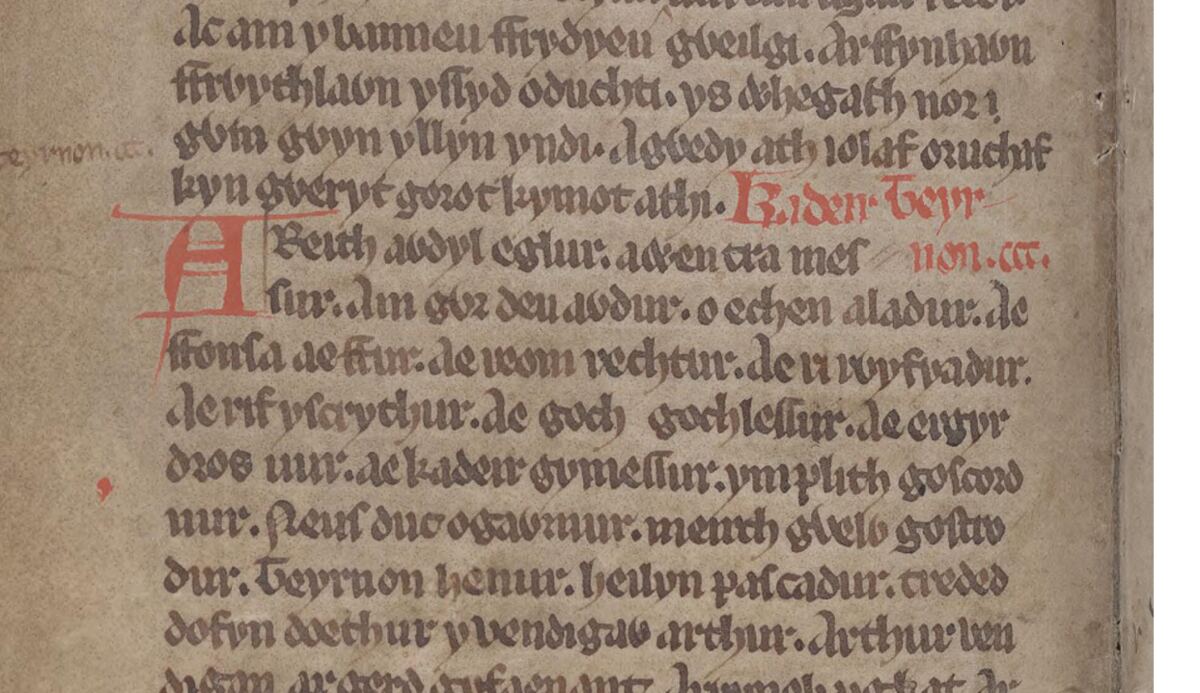 Ac am y banneu ffrydyeu gỽeilgi. Ar ffynhaỽn
ffrỽythlaỽn yssyd oduchti. ys whegach nor
gỽin gỽyn yllyn yndi. Agỽedy ath iolaf oruchaf
kyn gỽeryt gorot kymot athi. Kadeir Teyr
teyrnon. ccc.
AReith aỽdyl eglur. awen tra mes non. ccc.
sur. Am gỽr deu aỽdur. o echen aladur. Ae
ffonsa ae ffur. Ae reom rechtur. Ae ri rỽyfyadur.
Ae rif yscrythur. Ae goch gochlessur. Ae ergyr
dros uur. Ae kadeir gymessur. ymplith goscord
uur. Neus duc ogaỽrnur. meirch gỽelỽ gostro
dur. Teyrnon henur. heilyn pascadur. treded
dofyn doethur y vendigaỽ arthur. Arthur ven
digan ar gerd